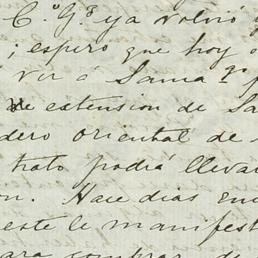 C.ª G.ª ya volvió
; espero que hoy
ver á Sama
de extension de Sa
dero oriental de
trato podrá lleva
on. Hace dias
este le manifest
ara comprar de